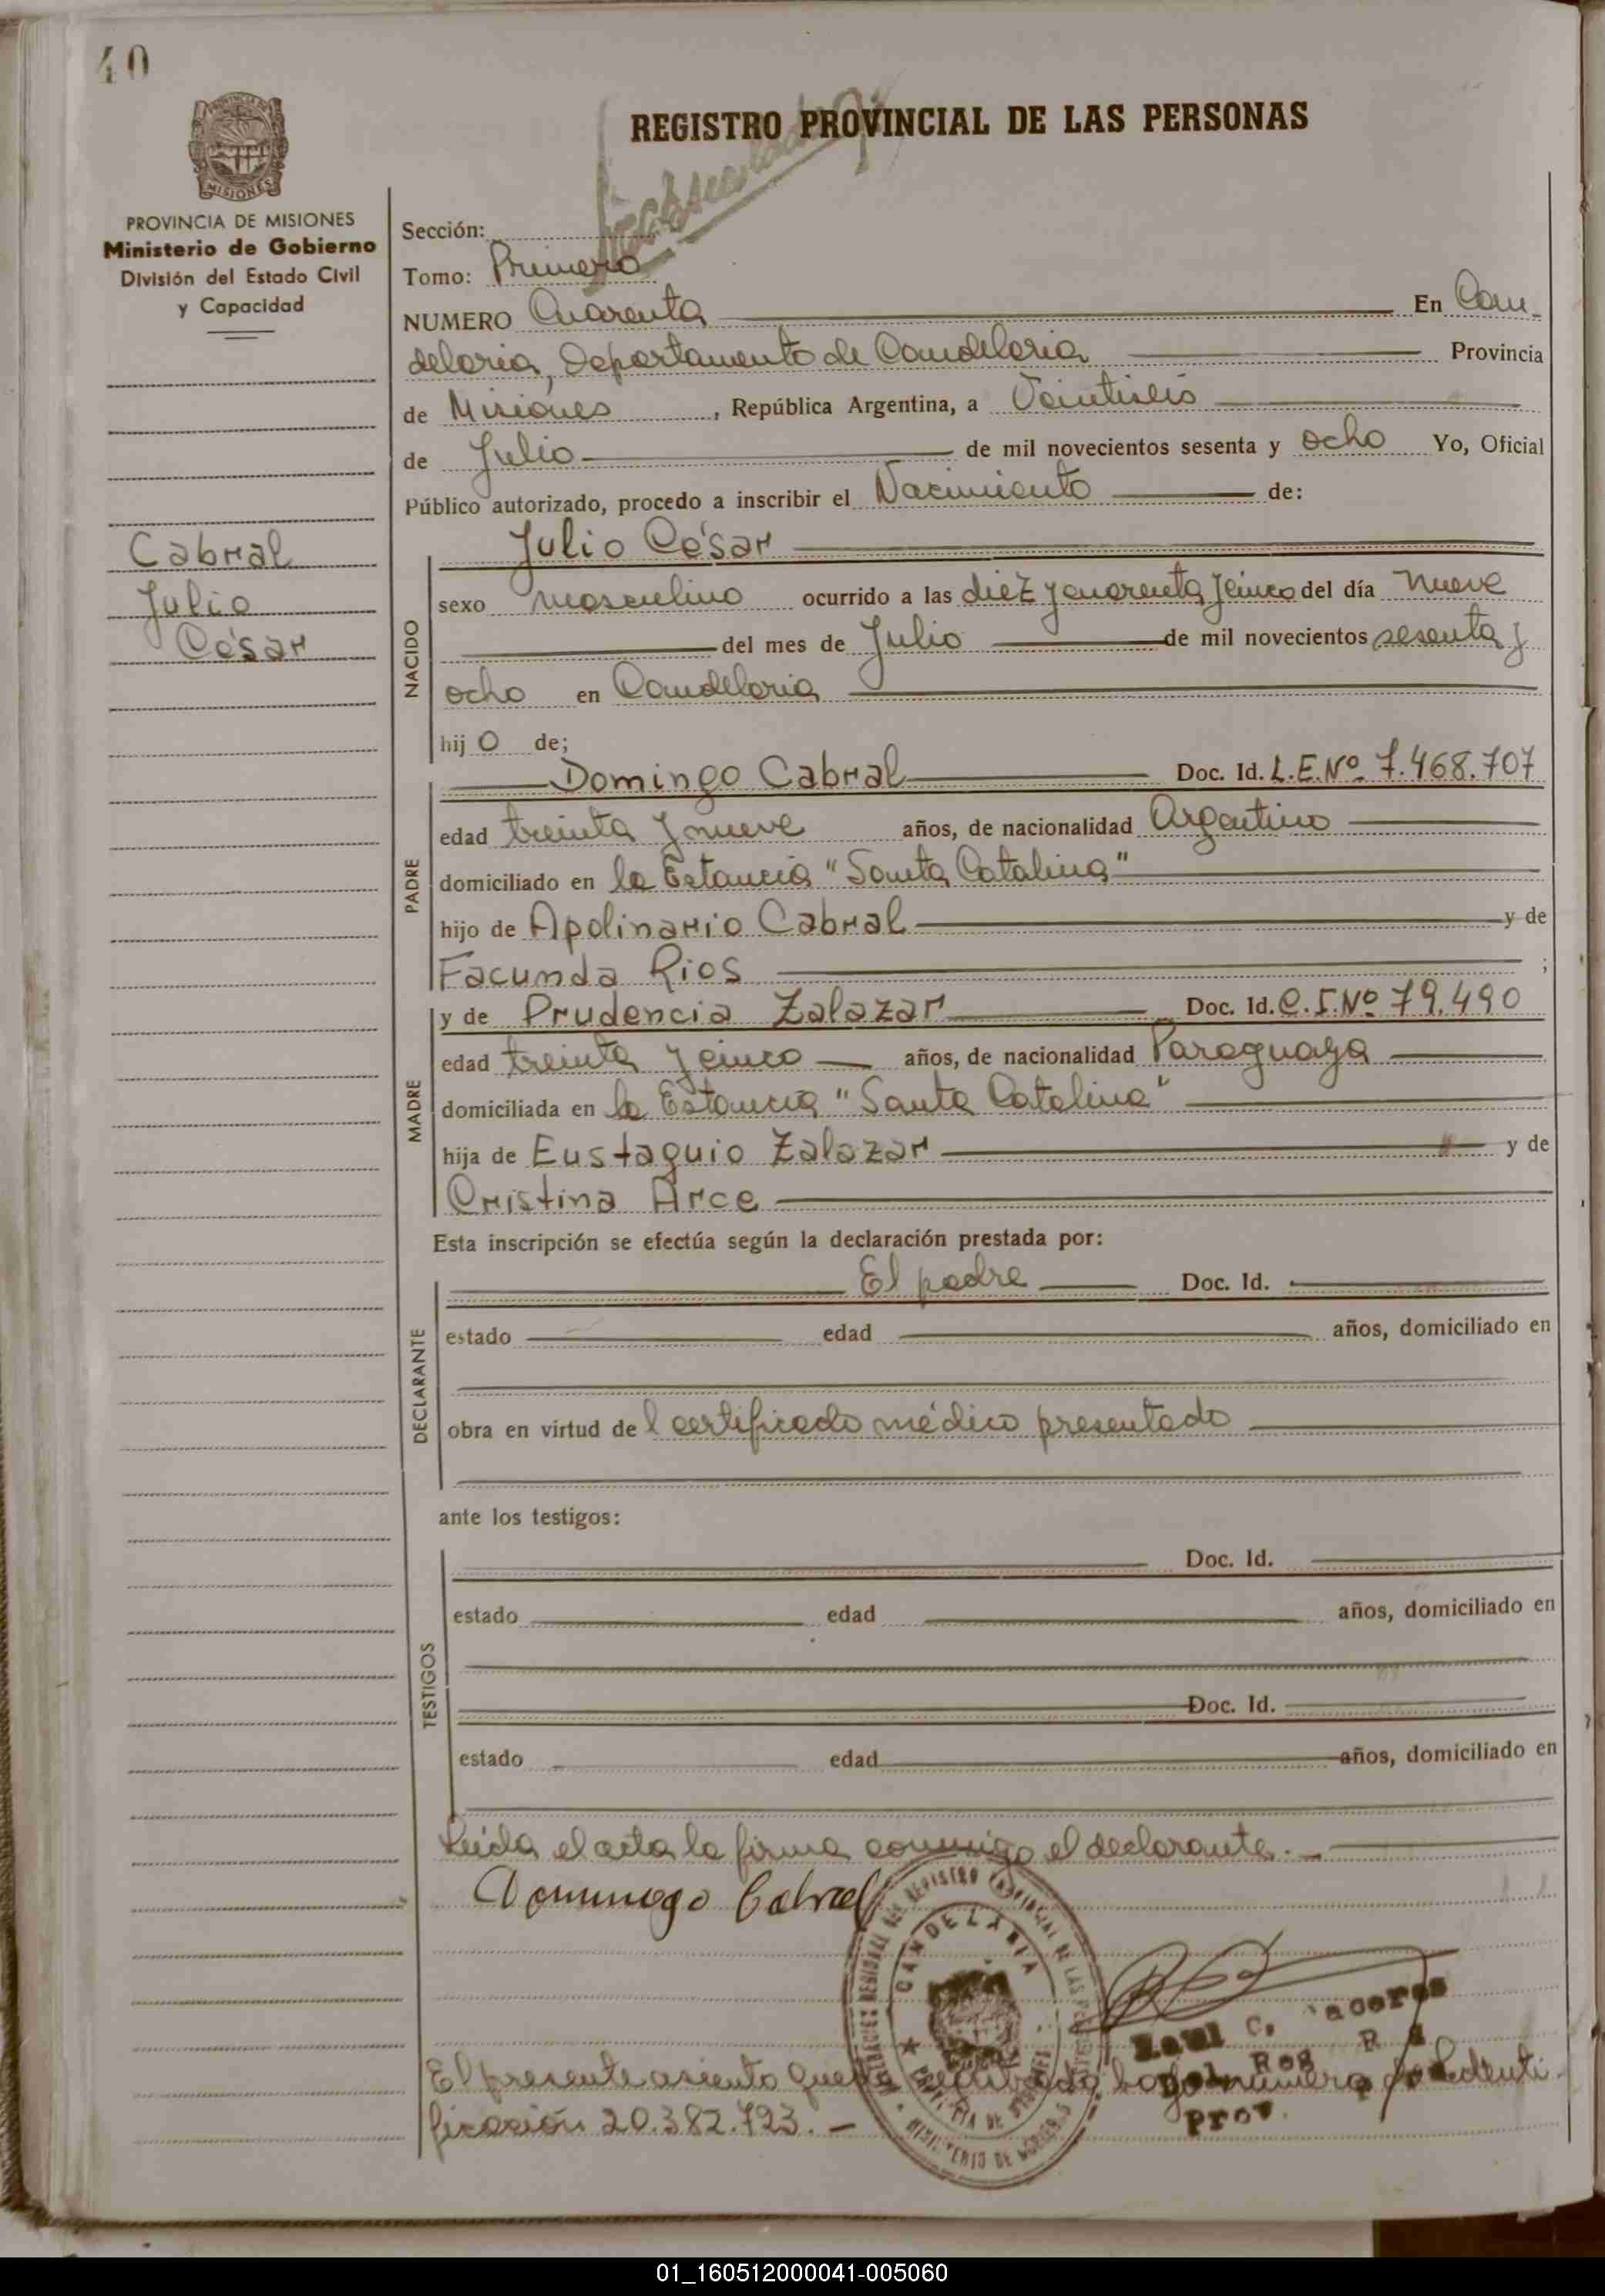 40
REGISTRO PROVINCIAL DE LAS PERSONAS
MISIONES
PROVINCIA DE MISIONES
Ministerio de Gobierno
División del Estado Civil
y Capacidad
Cabral
Julio
César
Sección:
Tomo: Primero
NUMERO Cuarenta En Can-
delaria, Departamento de Candelaria Provincia
de Misiones, República Argentina, a Veintiseis
de Julio de mil novecientos sesenta y ocho Yo, Oficial
Público autorizado, procedo a inscribir el Nacimiento de:
NACIDO
Julio César
sexo masculino ocurrido a las diez y cuarenta y cinco del día nueve
del mes de Julio de mil novecientos sesenta y
ocho en Candelaria
hijo de;
PADRE
Domingo Cabral Doc. Id. L.E.Nº 7.468.707
edad treinta y nueve años, de nacionalidad Argentino
domiciliado en la Estancia "Santa Catalina"
hijo de Apolinario Cabral y de
Facunda Rios ;
MADRE
y de Prudencia Zalazar Doc. Id. C.I.Nº 79.490
edad treinta y cinco años, de nacionalidad Paraguaya
domiciliada en la Estancia "Santa Catalina"
hija de Eustaquio Zalazar y de
Cristina Arce
Esta inscripción se efectúa según la declaración prestada por:
DECLARANTE
El padre Doc. Id.
estado edad años, domiciliado en
obra en virtud del certificado médico presentado
ante los testigos:
TESTIGOS
Doc. Id.
estado edad años, domiciliado en
Doc. Id.
estado edad años, domiciliado en
Leída el acta la firma conmigo el declarante.—
Domingo Cabral
CANDELARIA
Raul C.
Prov.
El presente asiento queda bajo número de Identi-
ficación 20.382.723.—
01_160512000041-005060